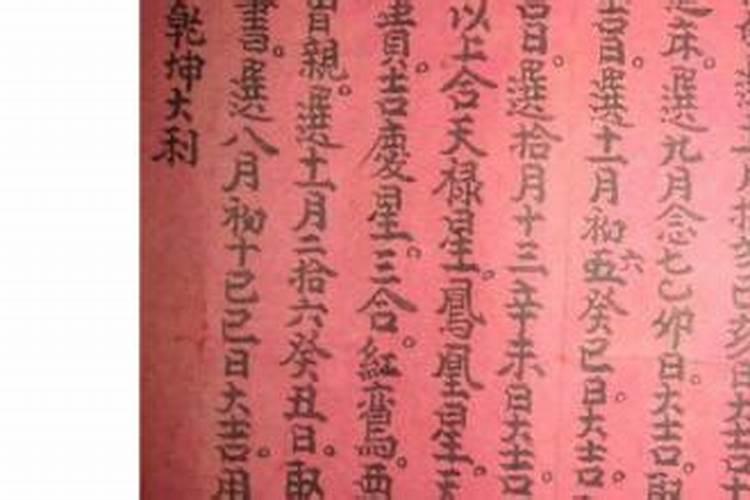 床。選九月念七乙卯日。大吉。
吉日。選十一月初五六癸巳日。大吉。
吉日。選拾月十三辛未日大吉。
以上合天祿星。鳳凰星。
貴吉慶星。三合。紅鸞。
親。選十一月二拾六癸丑日。取
書。選八月初十己巳日大吉。用
乾坤大利